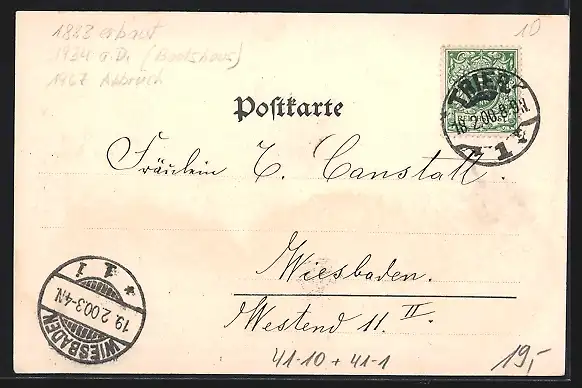 1883 erbaut
1934 a.D. (Bootshaus)
1967 Abbruch
10
TRIER
18.2.00.8-9N
1
Postkarte
Fräulein C. Canstatt.
Wiesbaden.
Westend 11 II.
1
19.2.00.3-4N
WIESBADEN
41-10 + 41-1
19,-